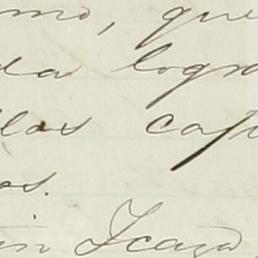 mo, que
da logra
las cap
os.
in Icaza,